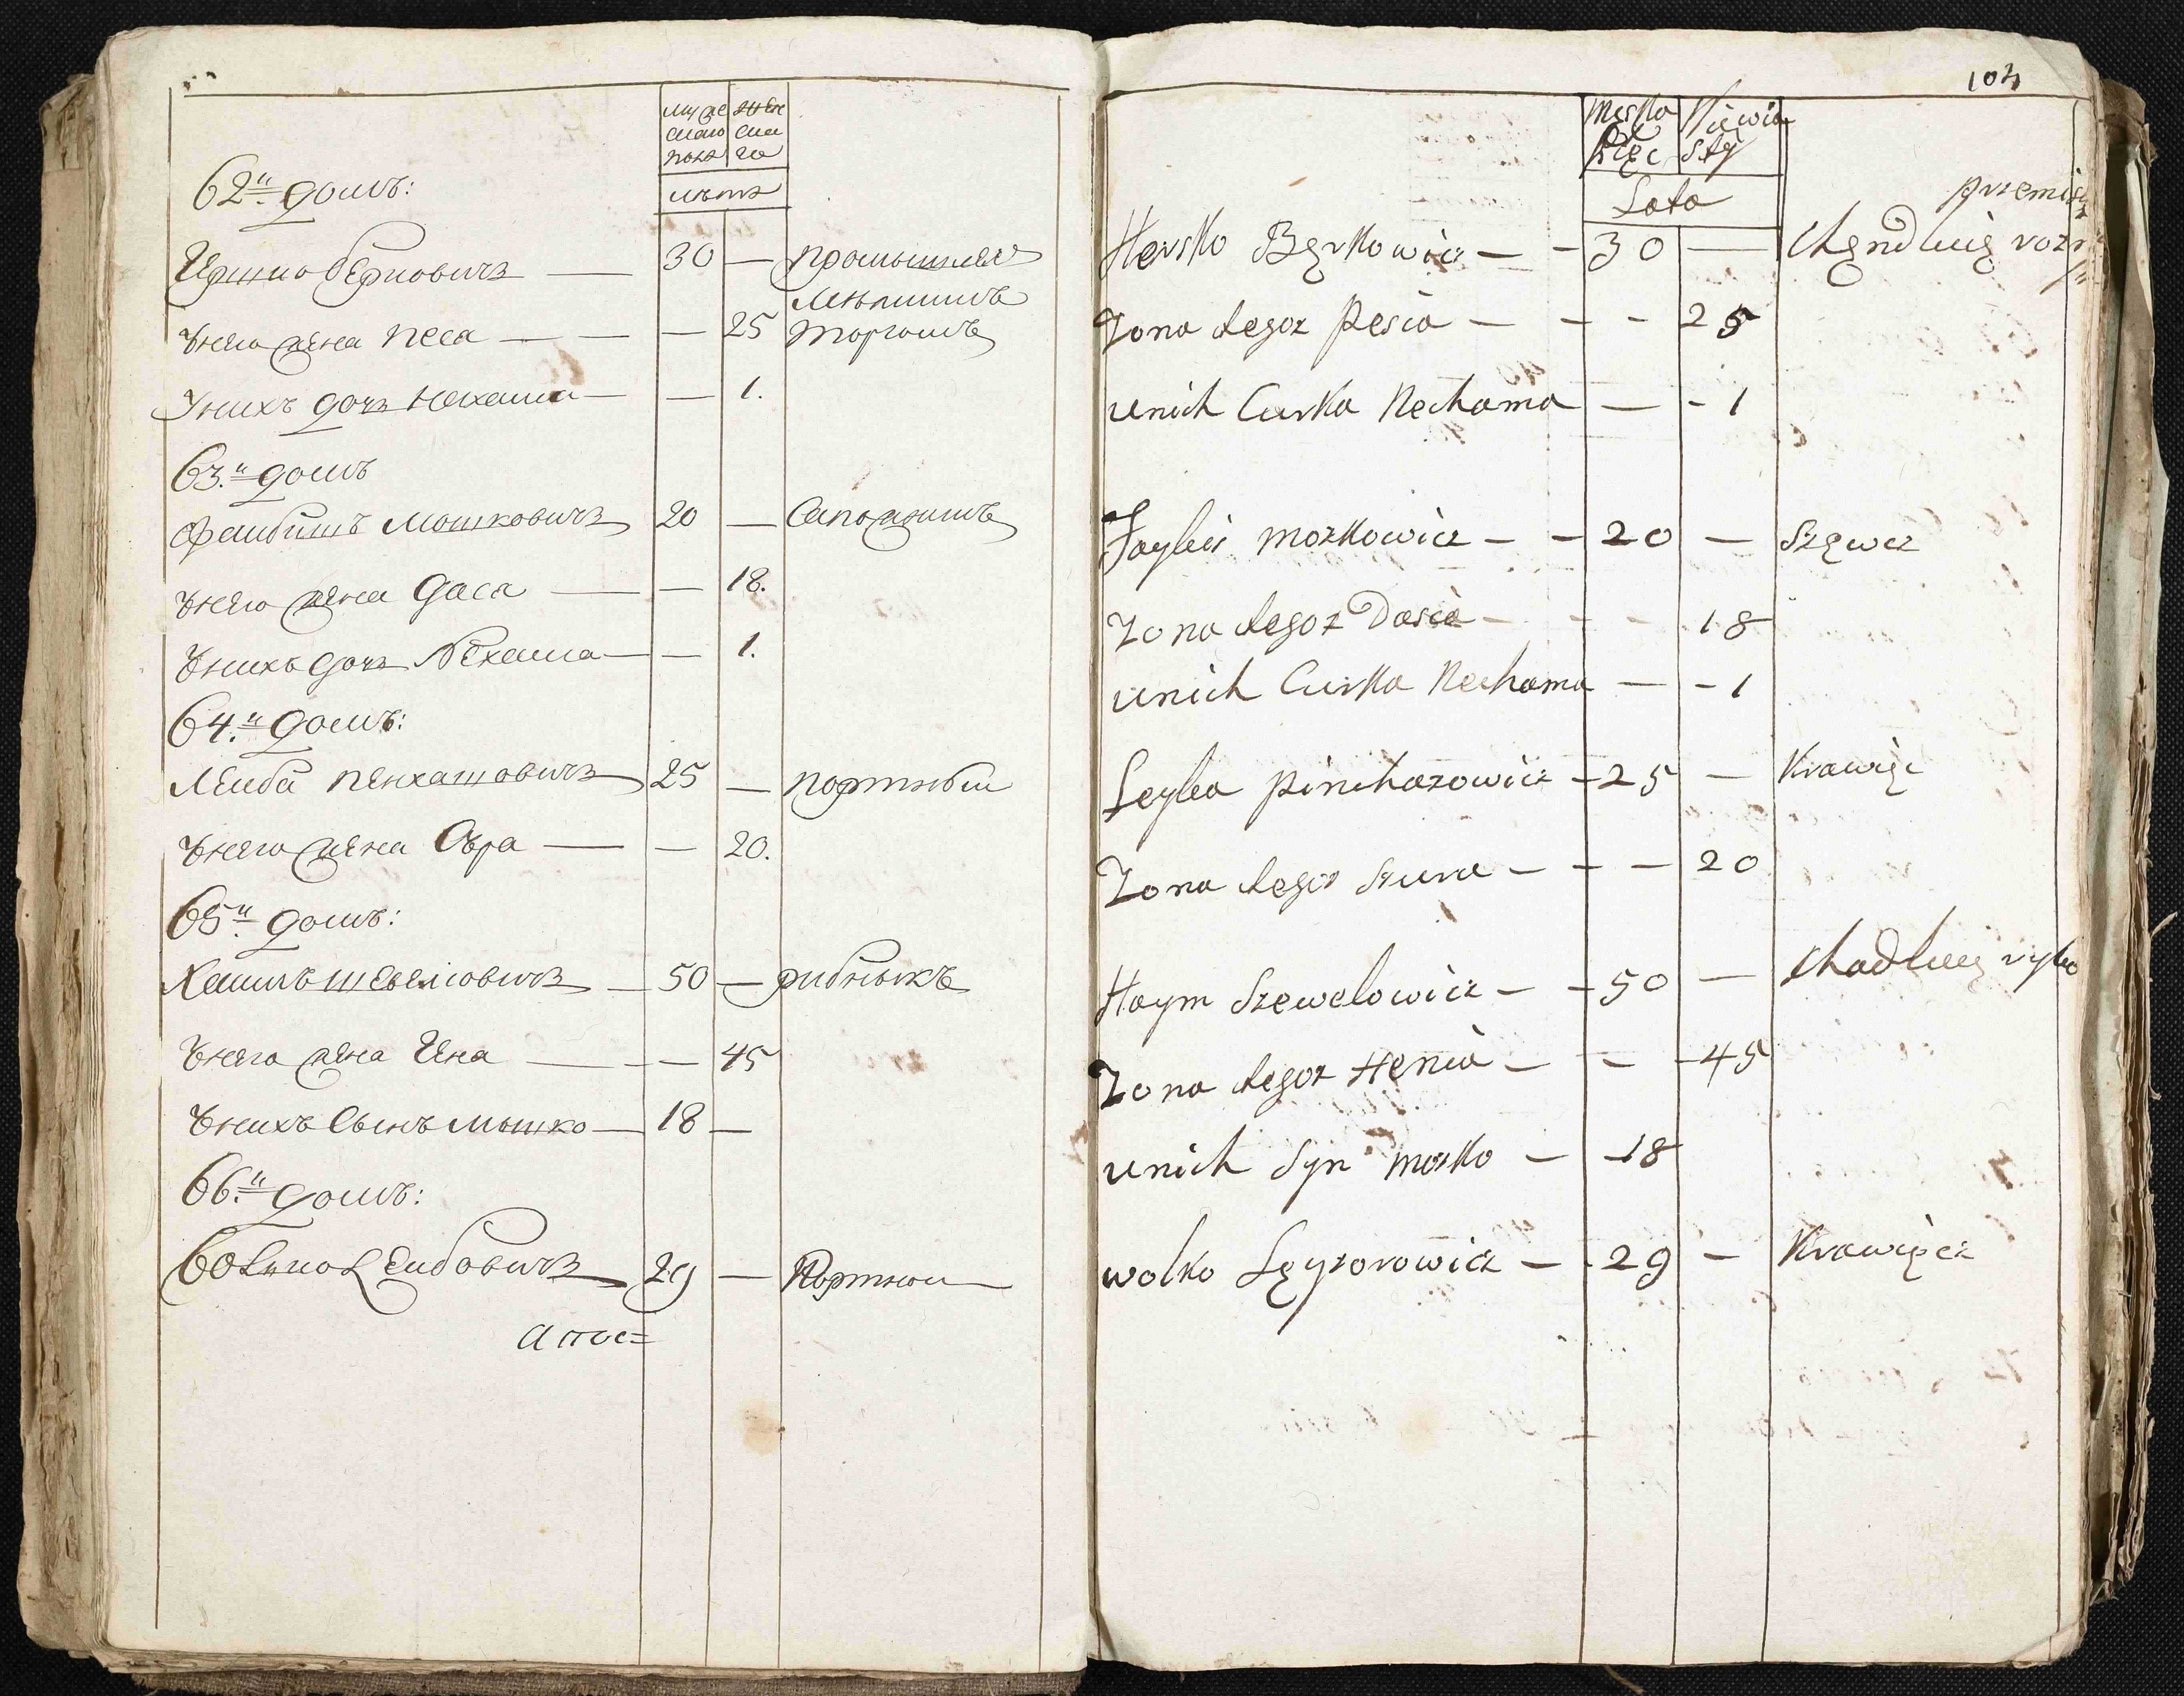 муже
скаго
пола
жен
ска
го
лѣта
62й домъ:
Гершко берковичъ — 30 — промышляет
мѣлкимъ
Унего жена Песя — — — 25 торгомъ
Унихъ дочь Нехама — — 1.
63.й домъ
Файбишъ Мошковичъ 20 — Сапожникъ
Унего жена Дася — — 18.
Унихъ дочь Нехама — — 1.
64.й домъ:
Лейба Пенхасовичъ 25 — портный
Унего жена Сура — — 20.
65й домъ:
Хаимъ Шевелiовичъ — 50 — рибныкъ
Унего жена Гена — — — 45
Унихъ Сынъ Мошко — 18 —
66.й домъ:
Волько Лейбовичъ 29 — Портной
104
Męsko
Płec
Niewia
sty
Lata
przemisz
Hersko Bęrkowicz — — 30 — Chęndluię rozn
Zona Iegoz Pesia — — — 25
unich Curka Nechama — — 1
Faybis Moszkowicz — — 20 — Szęwcz
Zona Iegoz Dasia — — — 18
unich Curka Nechama — — 1
Leyba Pinchazowicz — 25 — Krawięc
Zona Iegoz Szura — — — 20
Haym Szewelowicz — — 50 — Chadluię rybo
Zona Iegoz Henia — — — 45
unich Syn Moszko — — 18
Wolko Lęyzorowicz — 29 — Krawięcz